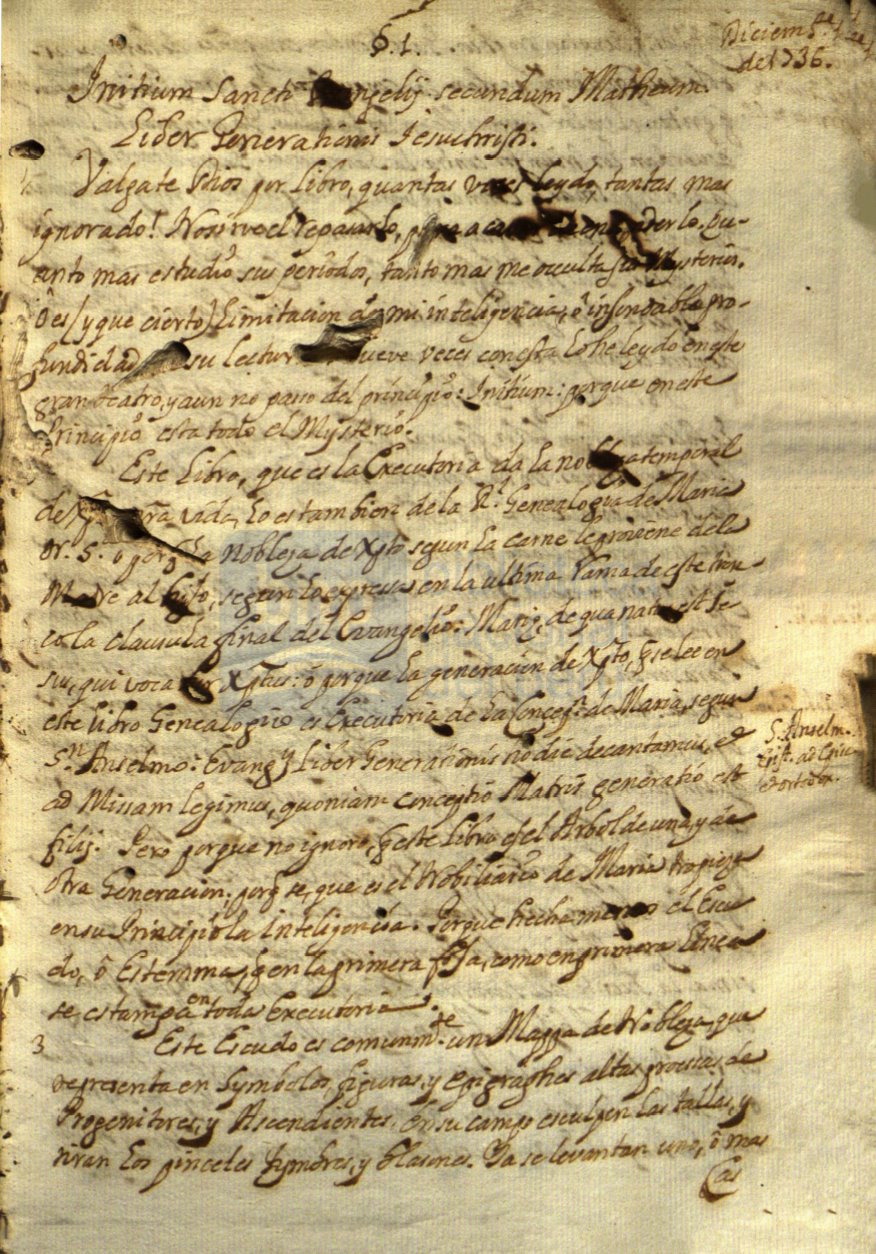 §. 1.
Diciem.re
de 1736.
Initium Sancti Evangelij secundum Matheum.
Liber Generationis Jesuchristi.
Valgate Dios por Libro, quantas vezes leydo, tantas mas
ignorado! No sirve el repasarlo, para acabar de entenderlo. Qu-
anto mas estudio sus periodos, tanto mas me occulta su Mysterio.
O es (y que cierto) Limitacion de mi inteligencia, ô insondable pro-
fundidad su lectura. Nueve veces con esta lo he leydo en este
gran teatro, y aun no passo del principio: Initium: porque en este
Principio esta todo el Mysterio.
Este Libro, que es la Executoria de la nobleza temporal
de Xpto vada, lo es tambien de la R.l Genealogia de Maria
N. S. o porq la Nobleza de Xpto segun la carne le proviene de la
Madre al hijo, segun lo expressa en la ultima rama de este tron-
co la clausula final del Evangelio: Mariæ, de qua natus est Je-
sus, qui vocatur Xptus: ô porque la generacion de Xpto, q se lee en
este libro Genealogico es Executoria de la Concepn. de Maria, segun
Sn. Anselmo: Evangy Liber Generationis hodie decantamus, et
ad Missam legimus, quoniam conceptio Matris generatio est
filij. Pero porque no ignoro, q este Libro es el Arbol de una, y de
otra Generacion; porq se, que es el Nobiliario de Maria tropieza
en su Principio la Inteligencia. Porque hecha menos el Escu-
do, ô Estemma, q en la primera foja, como en primera linea
se estampa en toda Executoria.
S. Anselm.
Epist. ad Epis.
3
Este Escudo es comunm.te un Mappa de Nobleza, que
representa en Symbolos, figuras, y epigraphes altas proesas de
Progenitores, y Ascendientes. En su campo esculpen las tallas, y
tiran los pinceles tymbres, y blasones. Ya se levantan uno, ô mas
Cas